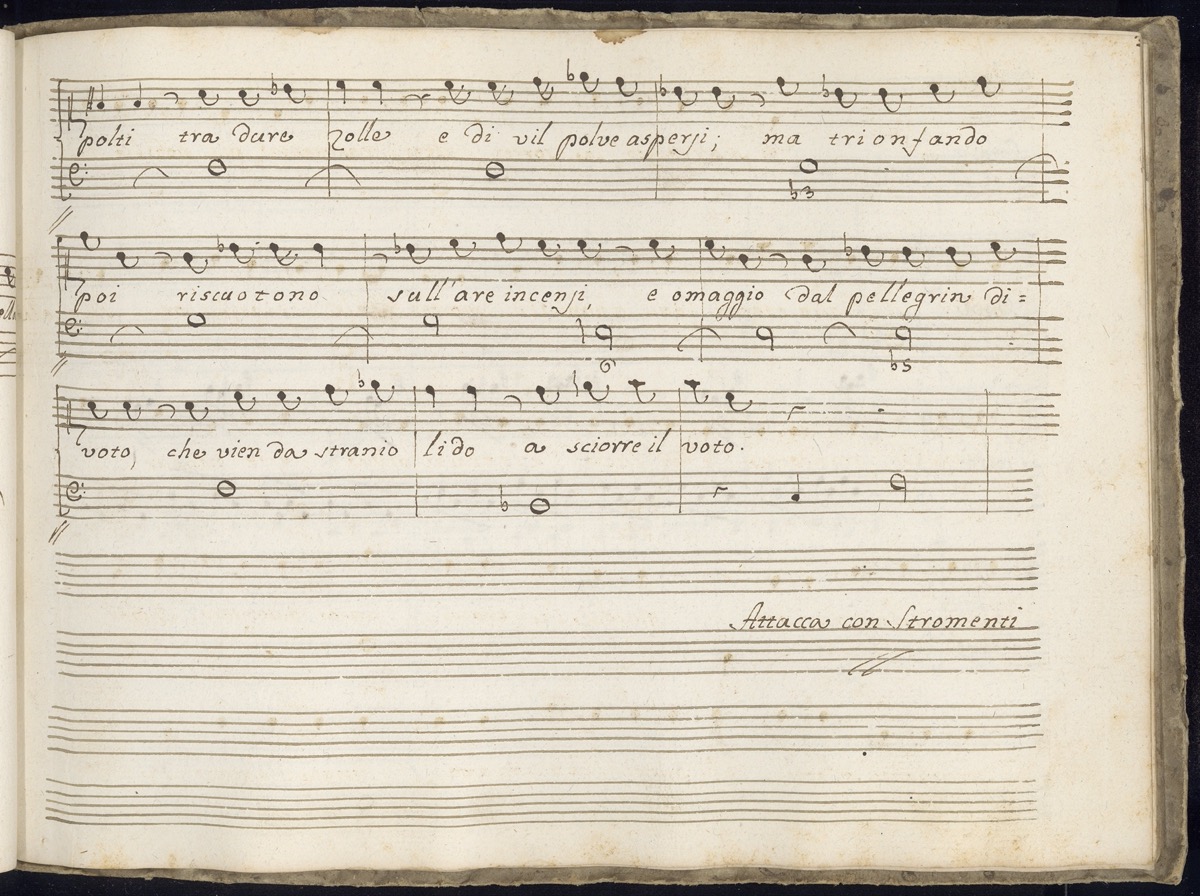 polti tra dure zolle e di vil polve aspersi; ma trionfando
b3
poi riscuotono sull'are incensi, e omaggio dal pellegrin di=
6 b5
voto, che vien da stranio lido a sciorre il voto.
Attacca con Stromenti